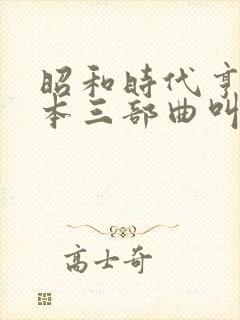 昭和時代亨
本三部曲叫
高士奇